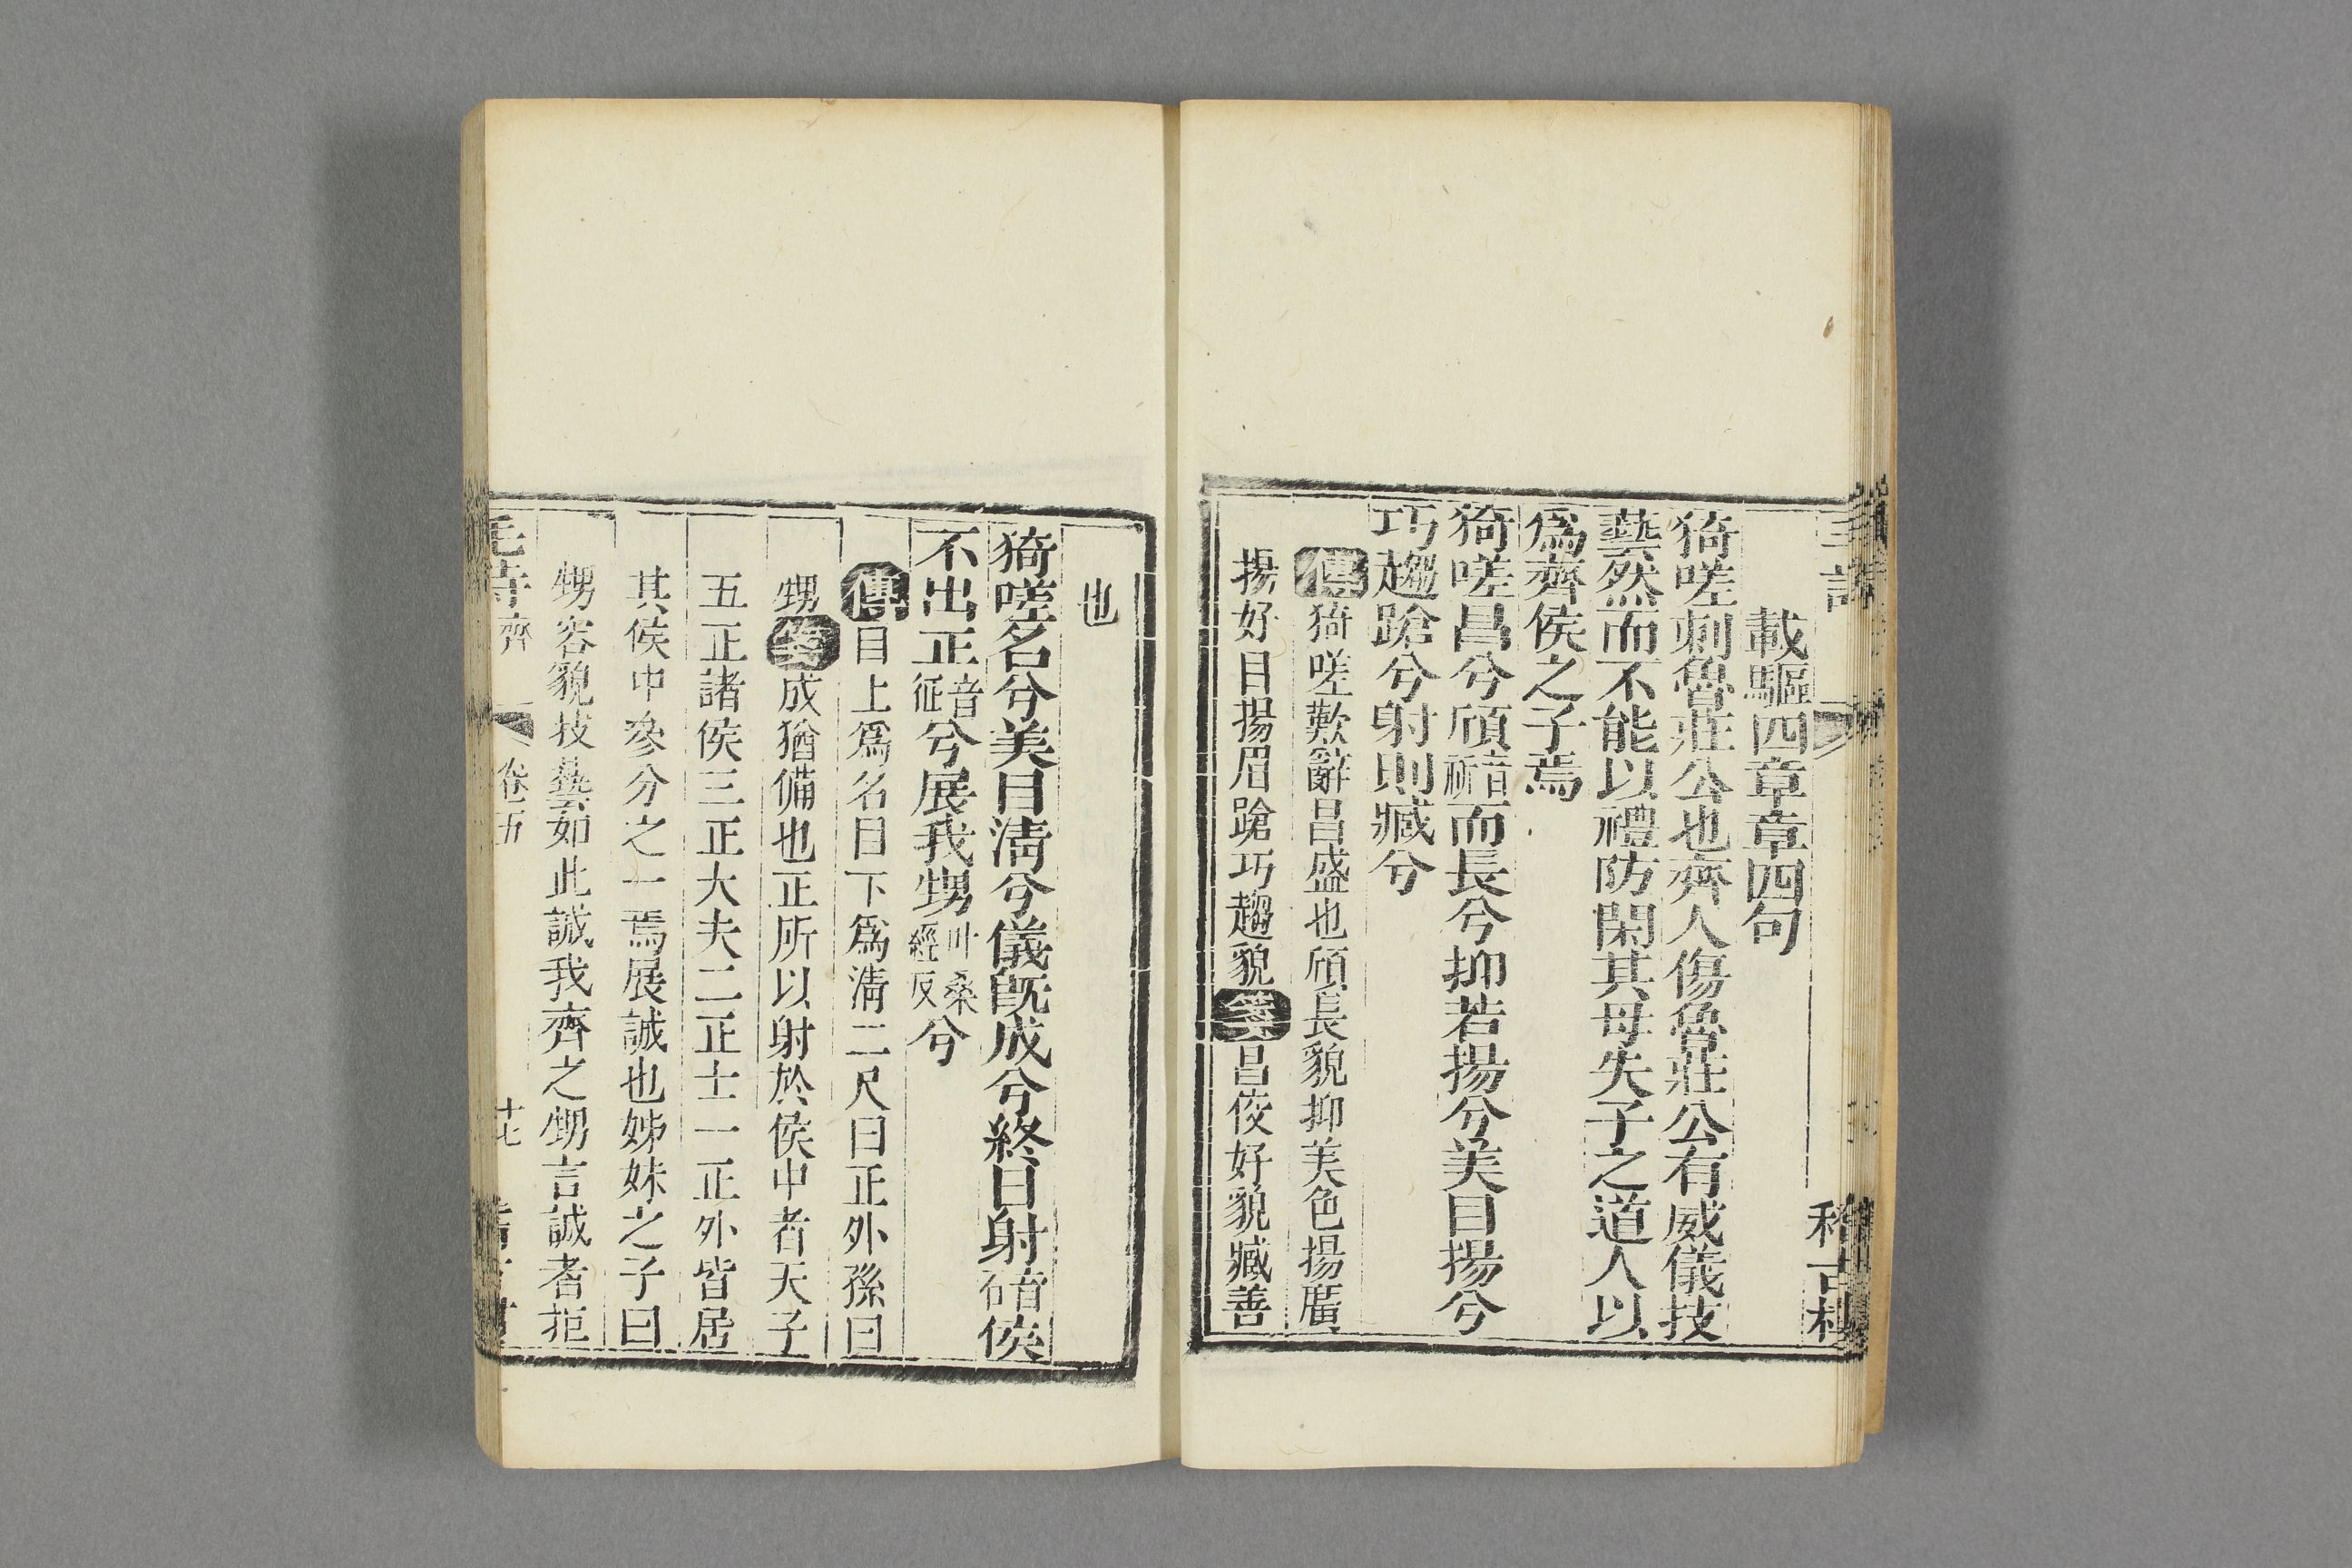 載驅四章章四句
猗嗟刺魯莊公也齊人傷魯莊公有威儀技
藝然而不能以禮防閑其母失子之道人以
為齊侯之子焉
猗嗟昌兮頎音祈而長兮抑若揚兮美目揚兮
巧趨蹌兮射則臧兮
傳猗嗟歎辭昌盛也頎長貌抑美色揚廣
揚好目揚眉蹌巧趨貌箋昌佼好貌臧善
也
猗嗟名兮美目淸兮儀旣成兮終日射音石侯
不出正音征兮展我甥叶桑經反兮
傳目上為名目下為淸二尺曰正外孫曰
甥箋成猶備也正所以射於侯中者天子
五正諸侯三正大夫二正士一正外皆居
其侯中參分之一焉展誠也姊妹之子曰
甥容貌技藝如此誠我齊之甥言誠者拒
毛詩齊 卷五 十七